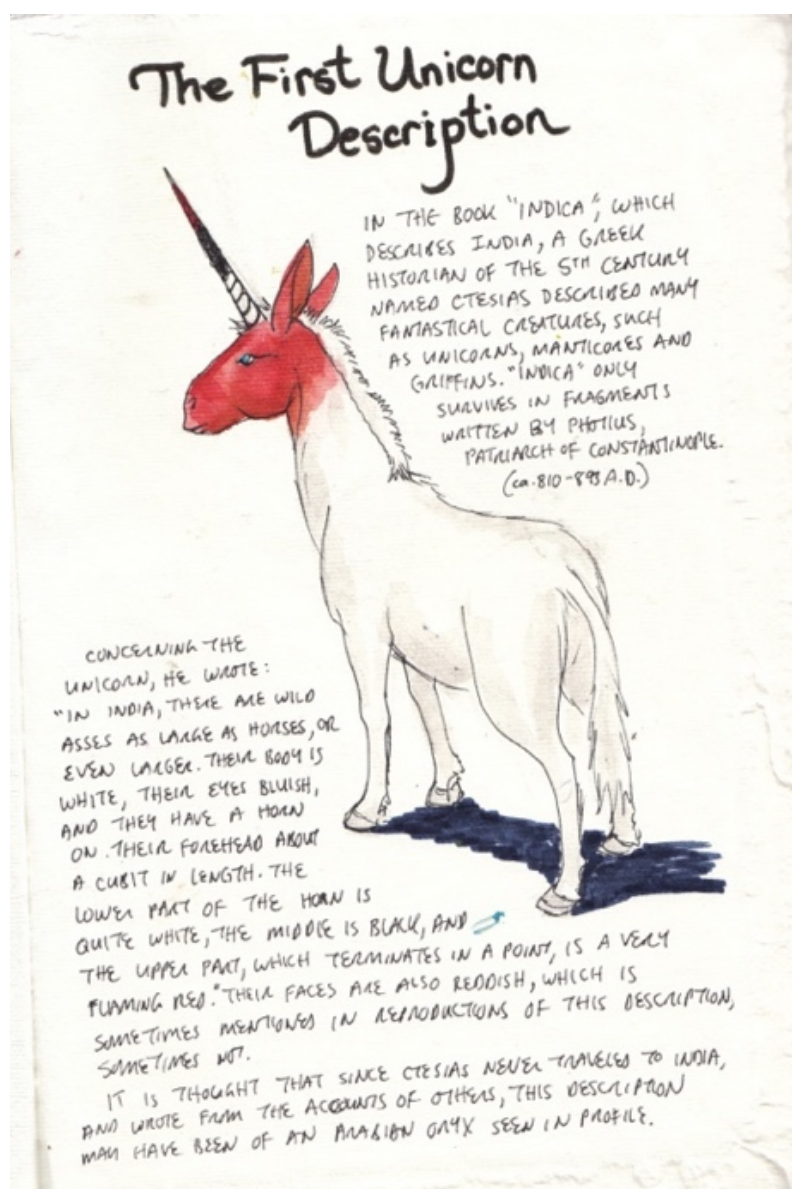 The First Unicorn
Description
IN THE BOOK "INDICA", WHICH
DESCRIBES INDIA, A GREEK
HISTORIAN OF THE 5TH CENTURY
NAMED CTESIAS DESCRIBED MANY
FANTASTICAL CREATURES, SUCH
AS UNICORNS, MANTICORES AND
GRIFFINS. "INDICA" ONLY
SURVIVES IN FRAGMENTS
WRITTEN BY PHOTIUS,
PATRIARCH OF CONSTANTINOPLE.
(ca. 810-893 A.D.)
CONCERNING THE
UNICORN, HE WROTE:
"IN INDIA, THERE ARE WILD
ASSES AS LARGE AS HORSES, OR
EVEN LARGER. THEIR BODY IS
WHITE, THEIR EYES BLUISH,
AND THEY HAVE A HORN
ON THEIR FOREHEAD ABOUT
A CUBIT IN LENGTH. THE
LOWER PART OF THE HORN IS
QUITE WHITE, THE MIDDLE IS BLACK, AND
THE UPPER PART, WHICH TERMINATES IN A POINT, IS A VERY
FLAMING RED." THEIR FACES ARE ALSO REDDISH, WHICH IS
SOMETIMES MENTIONED IN REPRODUCTIONS OF THIS DESCRIPTION,
SOMETIMES NOT.
IT IS THOUGHT THAT SINCE CTESIAS NEVER TRAVELED TO INDIA,
AND WROTE FROM THE ACCOUNTS OF OTHERS, THIS DESCRIPTION
MAY HAVE BEEN OF AN ARABIAN ORYX SEEN IN PROFILE.